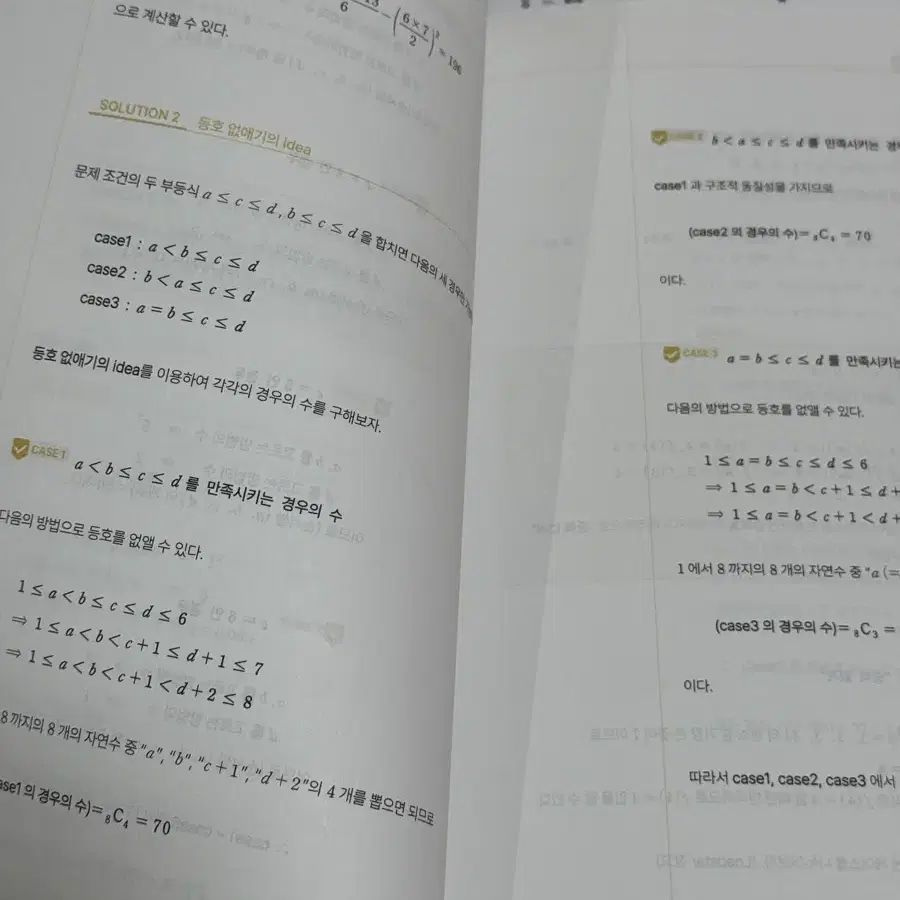 6 - (6×7/2)² = 196
으로 계산할 수 있다.
SOLUTION 2 등호 없애기의 idea
문제 조건의 두 부등식 a ≤ c ≤ d, b ≤ c ≤ d 을 합치면 다음의 세 경우만
case1 : a < b ≤ c ≤ d
case2 : b < a ≤ c ≤ d
case3 : a = b ≤ c ≤ d
등호 없애기의 idea를 이용하여 각각의 경우의 수를 구해보자.
CASE 1 a < b ≤ c ≤ d 를 만족시키는 경우의 수
다음의 방법으로 등호를 없앨 수 있다.
1 ≤ a < b ≤ c ≤ d ≤ 6
⇒ 1 ≤ a < b < c+1 ≤ d+1 ≤ 7
⇒ 1 ≤ a < b < c+1 < d+2 ≤ 8
8 까지의 8 개의 자연수 중 "a", "b", "c+1", "d+2"의 4 개를 뽑으면 되므로
case1 의 경우의 수)= ₈C₄ = 70
CASE 2 b < a ≤ c ≤ d 를 만족시키는
case1 과 구조적 동질성을 가지므로
(case2 의 경우의 수)= ₈C₄ = 70
이다.
CASE 3 a = b ≤ c ≤ d 를 만족시키는
다음의 방법으로 등호를 없앨 수 있다.
1 ≤ a = b ≤ c ≤ d ≤ 6
⇒ 1 ≤ a = b < c+1 ≤ d+
⇒ 1 ≤ a = b < c+1 < d+
1 에서 8 까지의 8 개의 자연수 중 "a (=
(case3 의 경우의 수)= ₈C₃ =
이다.
따라서 case1, case2, case3 에서